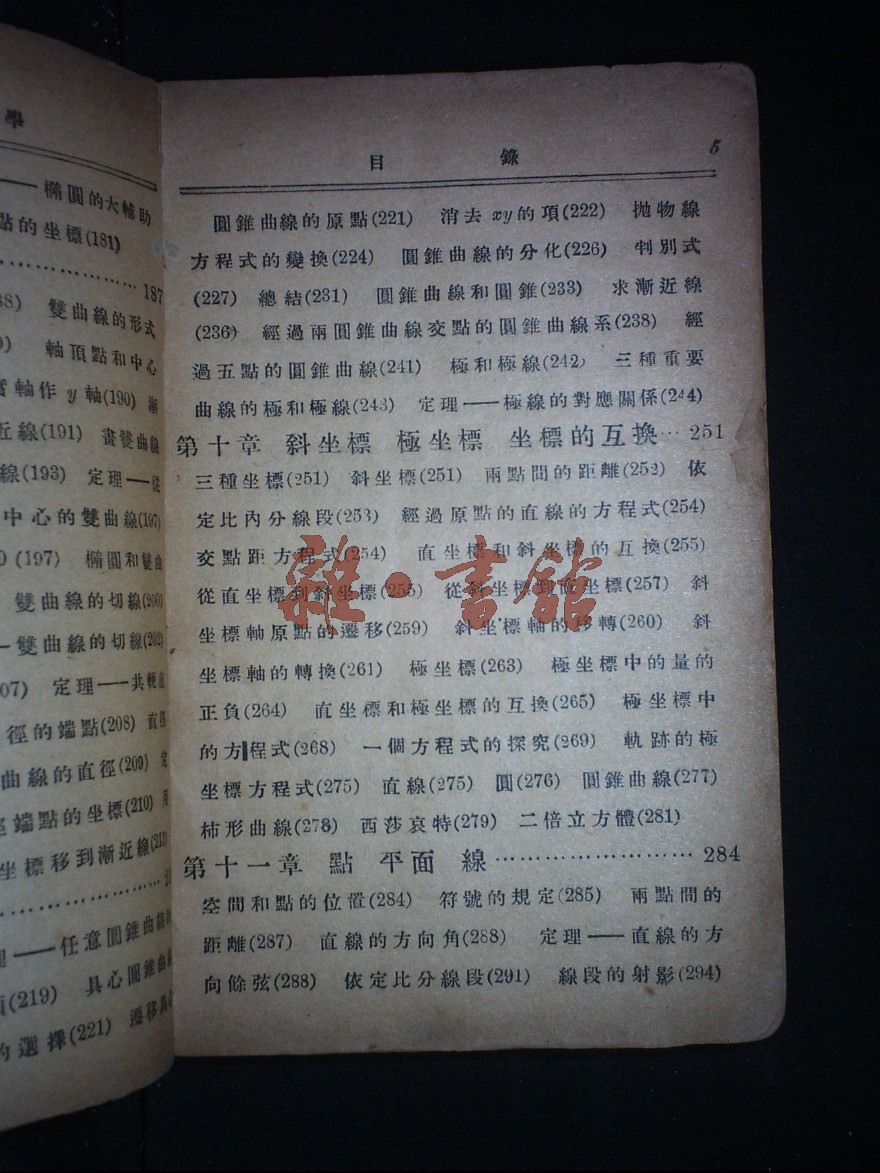 學
——橢圓的大輔助
點的坐標(181)
187
雙曲線的形式
軸頂點和中心
實軸作 y 軸(190) 漸
近線(191) 畫雙曲線
線(193) 定理——從
中心的雙曲線(197)
(197) 橢圓和雙曲
雙曲線的切線(200)
—雙曲線的切線(202)
07) 定理——共軛直
徑的端點(208) 直徑
曲線的直徑(209) 定
徑端點的坐標(210) 用
坐標移到漸近線(213)
——任意圓錐曲線的
項(219) 具心圓錐曲線
的選擇(221) 遷移具心
目 錄 5
圓錐曲線的原點(221) 消去 xy 的項(222) 拋物線
方程式的變換(224) 圓錐曲線的分化(226) 判別式
(227) 總結(231) 圓錐曲線和圓錐(233) 求漸近線
(236) 經過兩圓錐曲線交點的圓錐曲線系(238) 經
過五點的圓錐曲線(241) 極和極線(242) 三種重要
曲線的極和極線(243) 定理——極線的對應關係(244)
第十章 斜坐標 極坐標 坐標的互換…251
三種坐標(251) 斜坐標(251) 兩點間的距離(252) 依
定比內分線段(253) 經過原點的直線的方程式(254)
交點距方程式(254) 直坐標和斜坐標的互換(255)
從直坐標到斜坐標(255) 從斜坐標到直坐標(257) 斜
坐標軸原點的遷移(259) 斜坐標軸的移轉(260) 斜
坐標軸的轉換(261) 極坐標(263) 極坐標中的量的
正負(264) 直坐標和極坐標的互換(265) 極坐標中
的方程式(268) 一個方程式的探究(269) 軌跡的極
坐標方程式(275) 直線(275) 圓(276) 圓錐曲線(277)
柿形曲線(278) 西莎哀特(279) 二倍立方體(281)
第十一章 點 平面 線……………………284
空間和點的位置(284) 符號的規定(285) 兩點間的
距離(287) 直線的方向角(288) 定理——直線的方
向餘弦(288) 依定比分線段(291) 線段的射影(294)
雜·書館